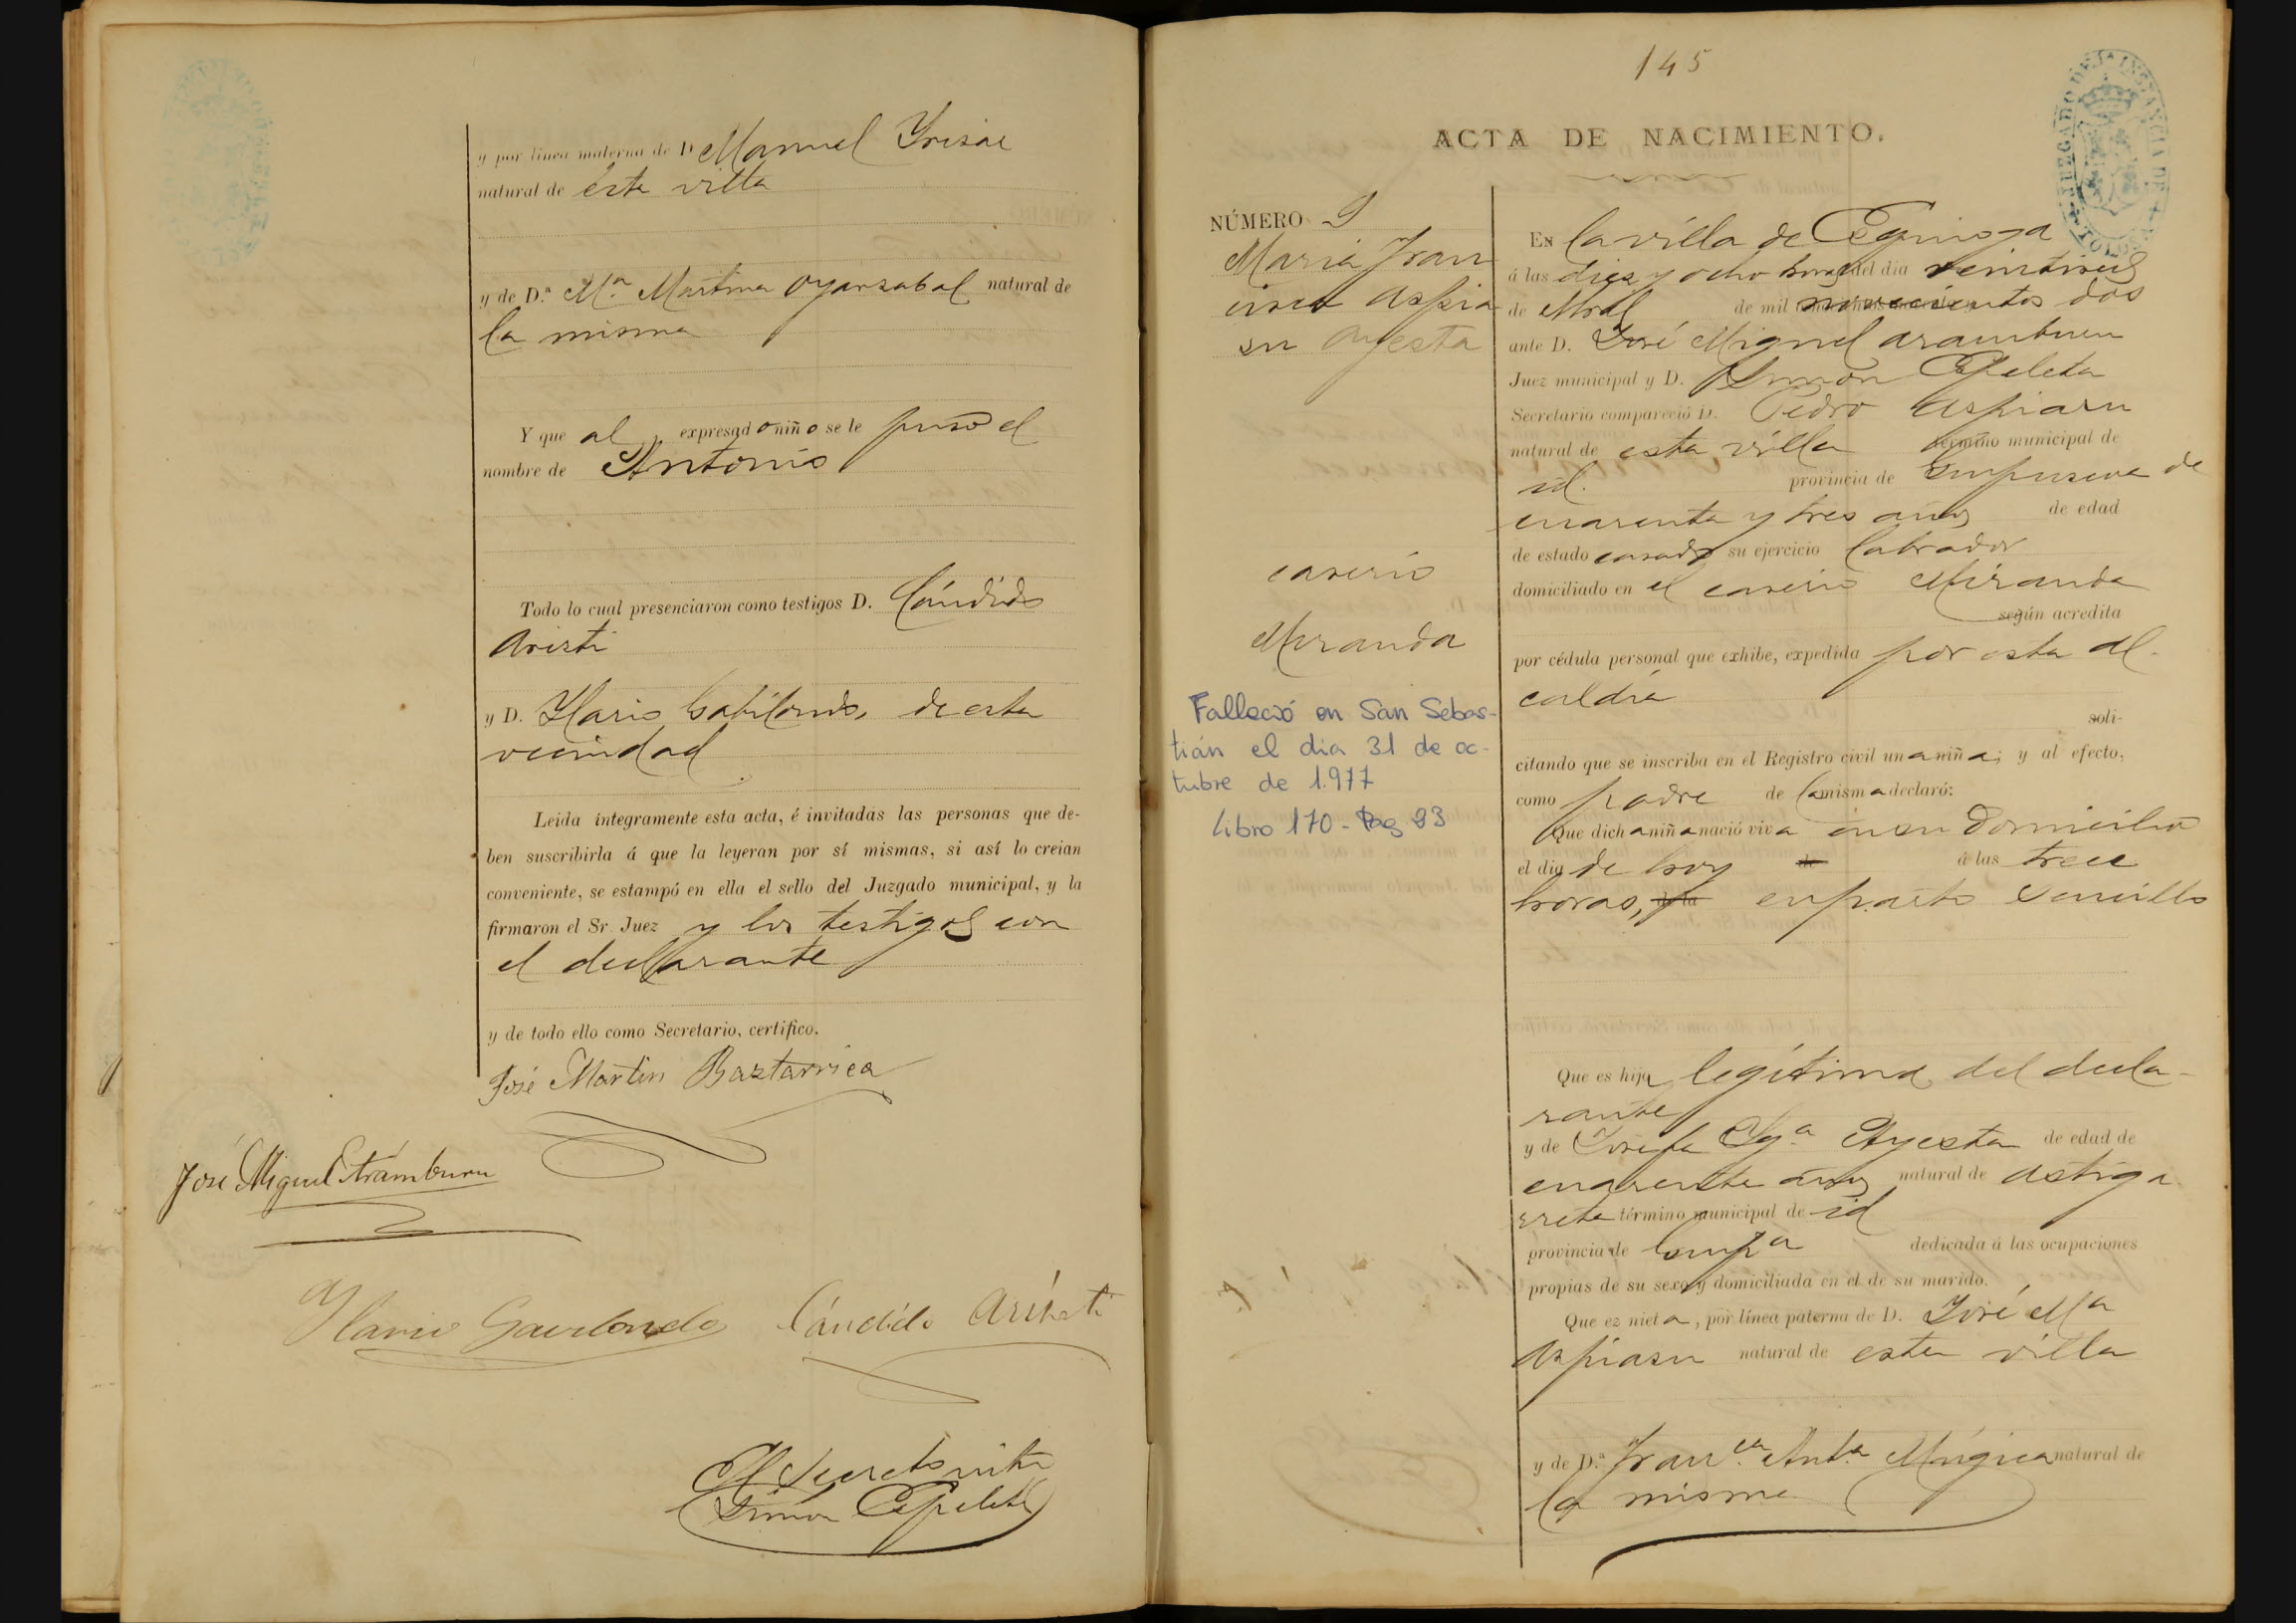 y por linea materna de D Manuel Yrisar
natural de esta villa
y de D.ª M.ª Martina Oyarzabal natural de
la misma
Y que al expresado niño se le puso el
nombre de Antonio
Todo lo cual presenciaron como testigos D. Cándido
Aristi
y D. Ylario Gabilondo, de esta
vecindad
Leida íntegramente esta acta, é invitadas las personas que de-
ben suscribirla á que la leyeran por sí mismas, si así lo creian
conveniente, se estampó en ella el sello del Juzgado municipal, y la
firmaron el Sr. Juez y los testigos con
el declarante
y de todo ello como Secretario, certifico.
José Martin Baztarrica
José Miguel Aramburu
Ylario Gavilondo Cándido Aristi
El Secretario
Simón Epeleta
145
ACTA DE NACIMIENTO.
JUZGADO DE 1ª INSTANCIA DE TOLOSA
NÚMERO 9
Maria Fran
cisca Aspia
su Ayesta
caserio
Miranda
Falleció en San Sebas-
tián el dia 31 de oc-
tubre de 1.977
Libro 170 - Pag 93
En la villa de
á las diez y ocho horas del dia veintiseis
de Abril de mil novecientos dos
ante D. José Miguel Aramburu
Juez municipal y D. Simón Epeleta
Secretario compareció D. Pedro Aspiasu
natural de esta villa término municipal de
id. provincia de Guipuzcoa de
cuarenta y tres años de edad
de estado casado su ejercicio labrador
domiciliado en el caserio Miranda
según acredita
por cédula personal que exhibe, expedida por esta Al-
caldia
soli-
citando que se inscriba en el Registro civil una niña; y al efecto,
como padre de la misma declaró:
Que dicha niña nació viva en su domicilio
el dia de hoy de á las trece
horas, de la en parto sencillo
Que es hija legítima del decla-
rante
y de Josefa Ig.ª Ayesta de edad de
cuarenta años natural de Astiga
rreta término municipal de id
provincia de Guip.ª dedicada á las ocupaciones
propias de su sexo y domiciliada en el de su marido.
Que es nieta, por línea paterna de D. José M.ª
Aspiasu natural de esta villa
y de D.ª Fran.ca Ant.ª Múgica natural de
la misma